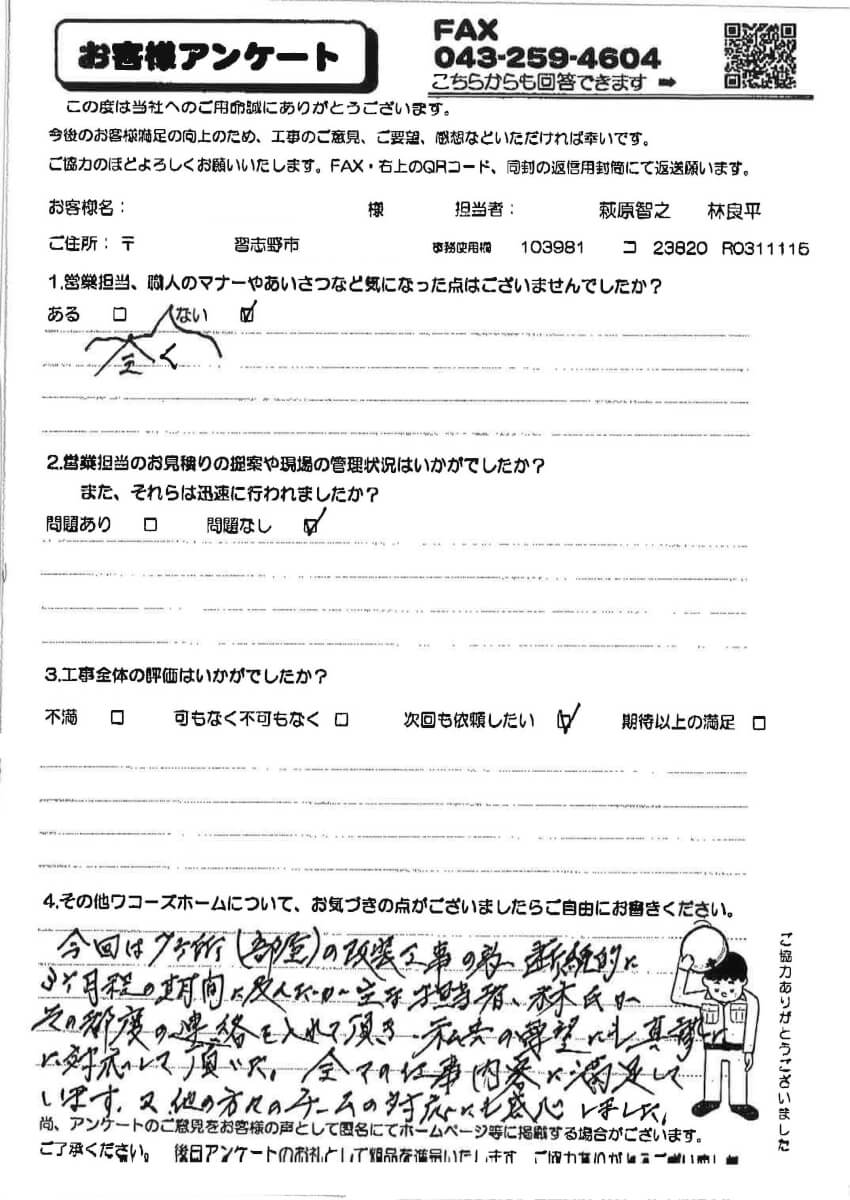 お客様アンケート
FAX
043-259-4604
こちらからも回答できます ➡
この度は当社へのご用命誠にありがとうございます。
今後のお客様満足の向上のため、工事のご意見、ご要望、感想などいただければ幸いです。
ご協力のほどよろしくお願いいたします。FAX・右上のQRコード、同封の返信用封筒にて返送願います。
お客様名： 様 担当者： 萩原智之 林良平
ご住所：〒 習志野市 事務使用欄 103981 コ 23820 R0311115
1.営業担当、職人のマナーやあいさつなど気になった点はございませんでしたか？
ある □ ない ☑
全く
2.営業担当のお見積りの提案や現場の管理状況はいかがでしたか？
また、それらは迅速に行われましたか？
問題あり □ 問題なし ☑
3.工事全体の評価はいかがでしたか？
不満 □ 可もなく不可もなく □ 次回も依頼したい ☑ 期待以上の満足 □
4.その他ワコーズホームについて、お気づきの点がございましたらご自由にお書きください。
今回は 所(部屋)の改装工事の為 断続的に
3ヶ月程の期間に及んだが 担当者、林氏が
その都度の連絡を入れて頂き 私共の要望にも真摯に
に対応して頂いた。全ての仕事内容に満足して
います。又、他の方々のチームの対応にも感心しました。
尚、アンケートのご意見をお客様の声として匿名にてホームページ等に掲載する場合がございます。
ご了承ください。 後日アンケートのお礼として粗品を進呈いたします。ご協力ありがとうございました
ご協力ありがとうございました